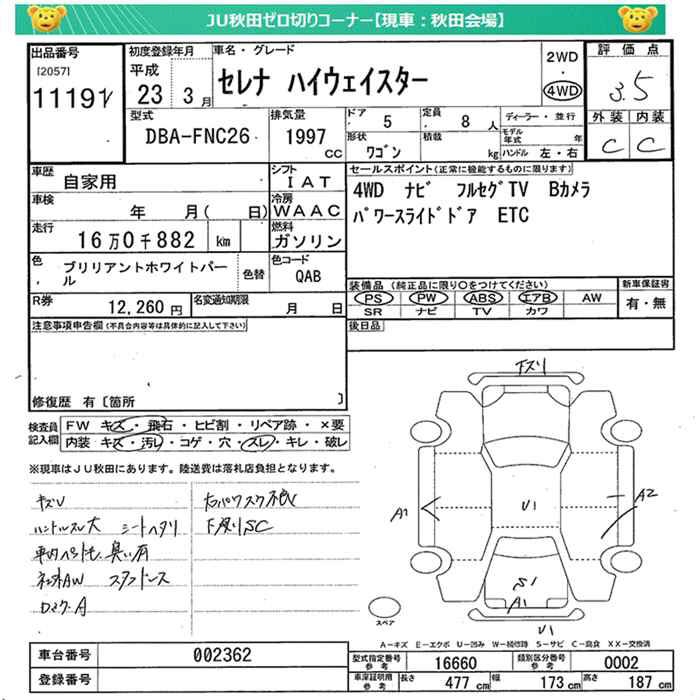 JU秋田ゼロ切りコーナー【現車：秋田会場】
出品番号
[2057]
11191
初度登録年月
平成
23 3月
車名・グレード
セレナ ハイウェイスター
2WD
・
4WD
評価点
3.5
外装 内装
C C
型式
DBA-FNC26
排気量
1997
cc
ドア
5
定員
8 人
形状
ワゴン
積載
kg
ディーラー・並行
モデル年式 年
ハンドル 左・右
車歴
自家用
シフト
IAT
車検
年 月( 日)
冷房
WAAC
走行
16万0千882 km
燃料
ガソリン
色
ブリリアントホワイトパール
色替
色コード
QAB
R券
12,260 円
名変通知期限
月 日
セールスポイント(正常に機能するものに限ります)
4WD ナビ フルセグTV Bカメラ
パワースライドドア ETC
装備品(純正品に限り○をつけてください)
PS PW ABS エアB AW
SR ナビ TV カワ
新車保証書
有・無
後日品
注意事項申告欄(不具合内容等は具体的に記入して下さい)
修復歴 有〔箇所 〕
検査員記入欄
FW キズ・飛石・ヒビ割・リペア跡・×要
内装 キズ・汚レ・コゲ・穴・スレ・キレ・破レ
※現車はJU秋田にあります。陸送費は落札店負担となります。
キズU
ハンドルスレ大 シートヘタリ
臭い有
AW
A
下廻りSC
下スリ
A1
A2
U1
S1
A1
U1
スペア
A－キズ E－エクボ U－凹み W－補修跡 S－サビ C－腐食 XX－交換済
車台番号
002362
登録番号
型式指定番号
参考
16660
類別区分番号
参考
0002
車庫証明用
参考
長さ 477 cm
幅 173 cm
高さ 187 cm